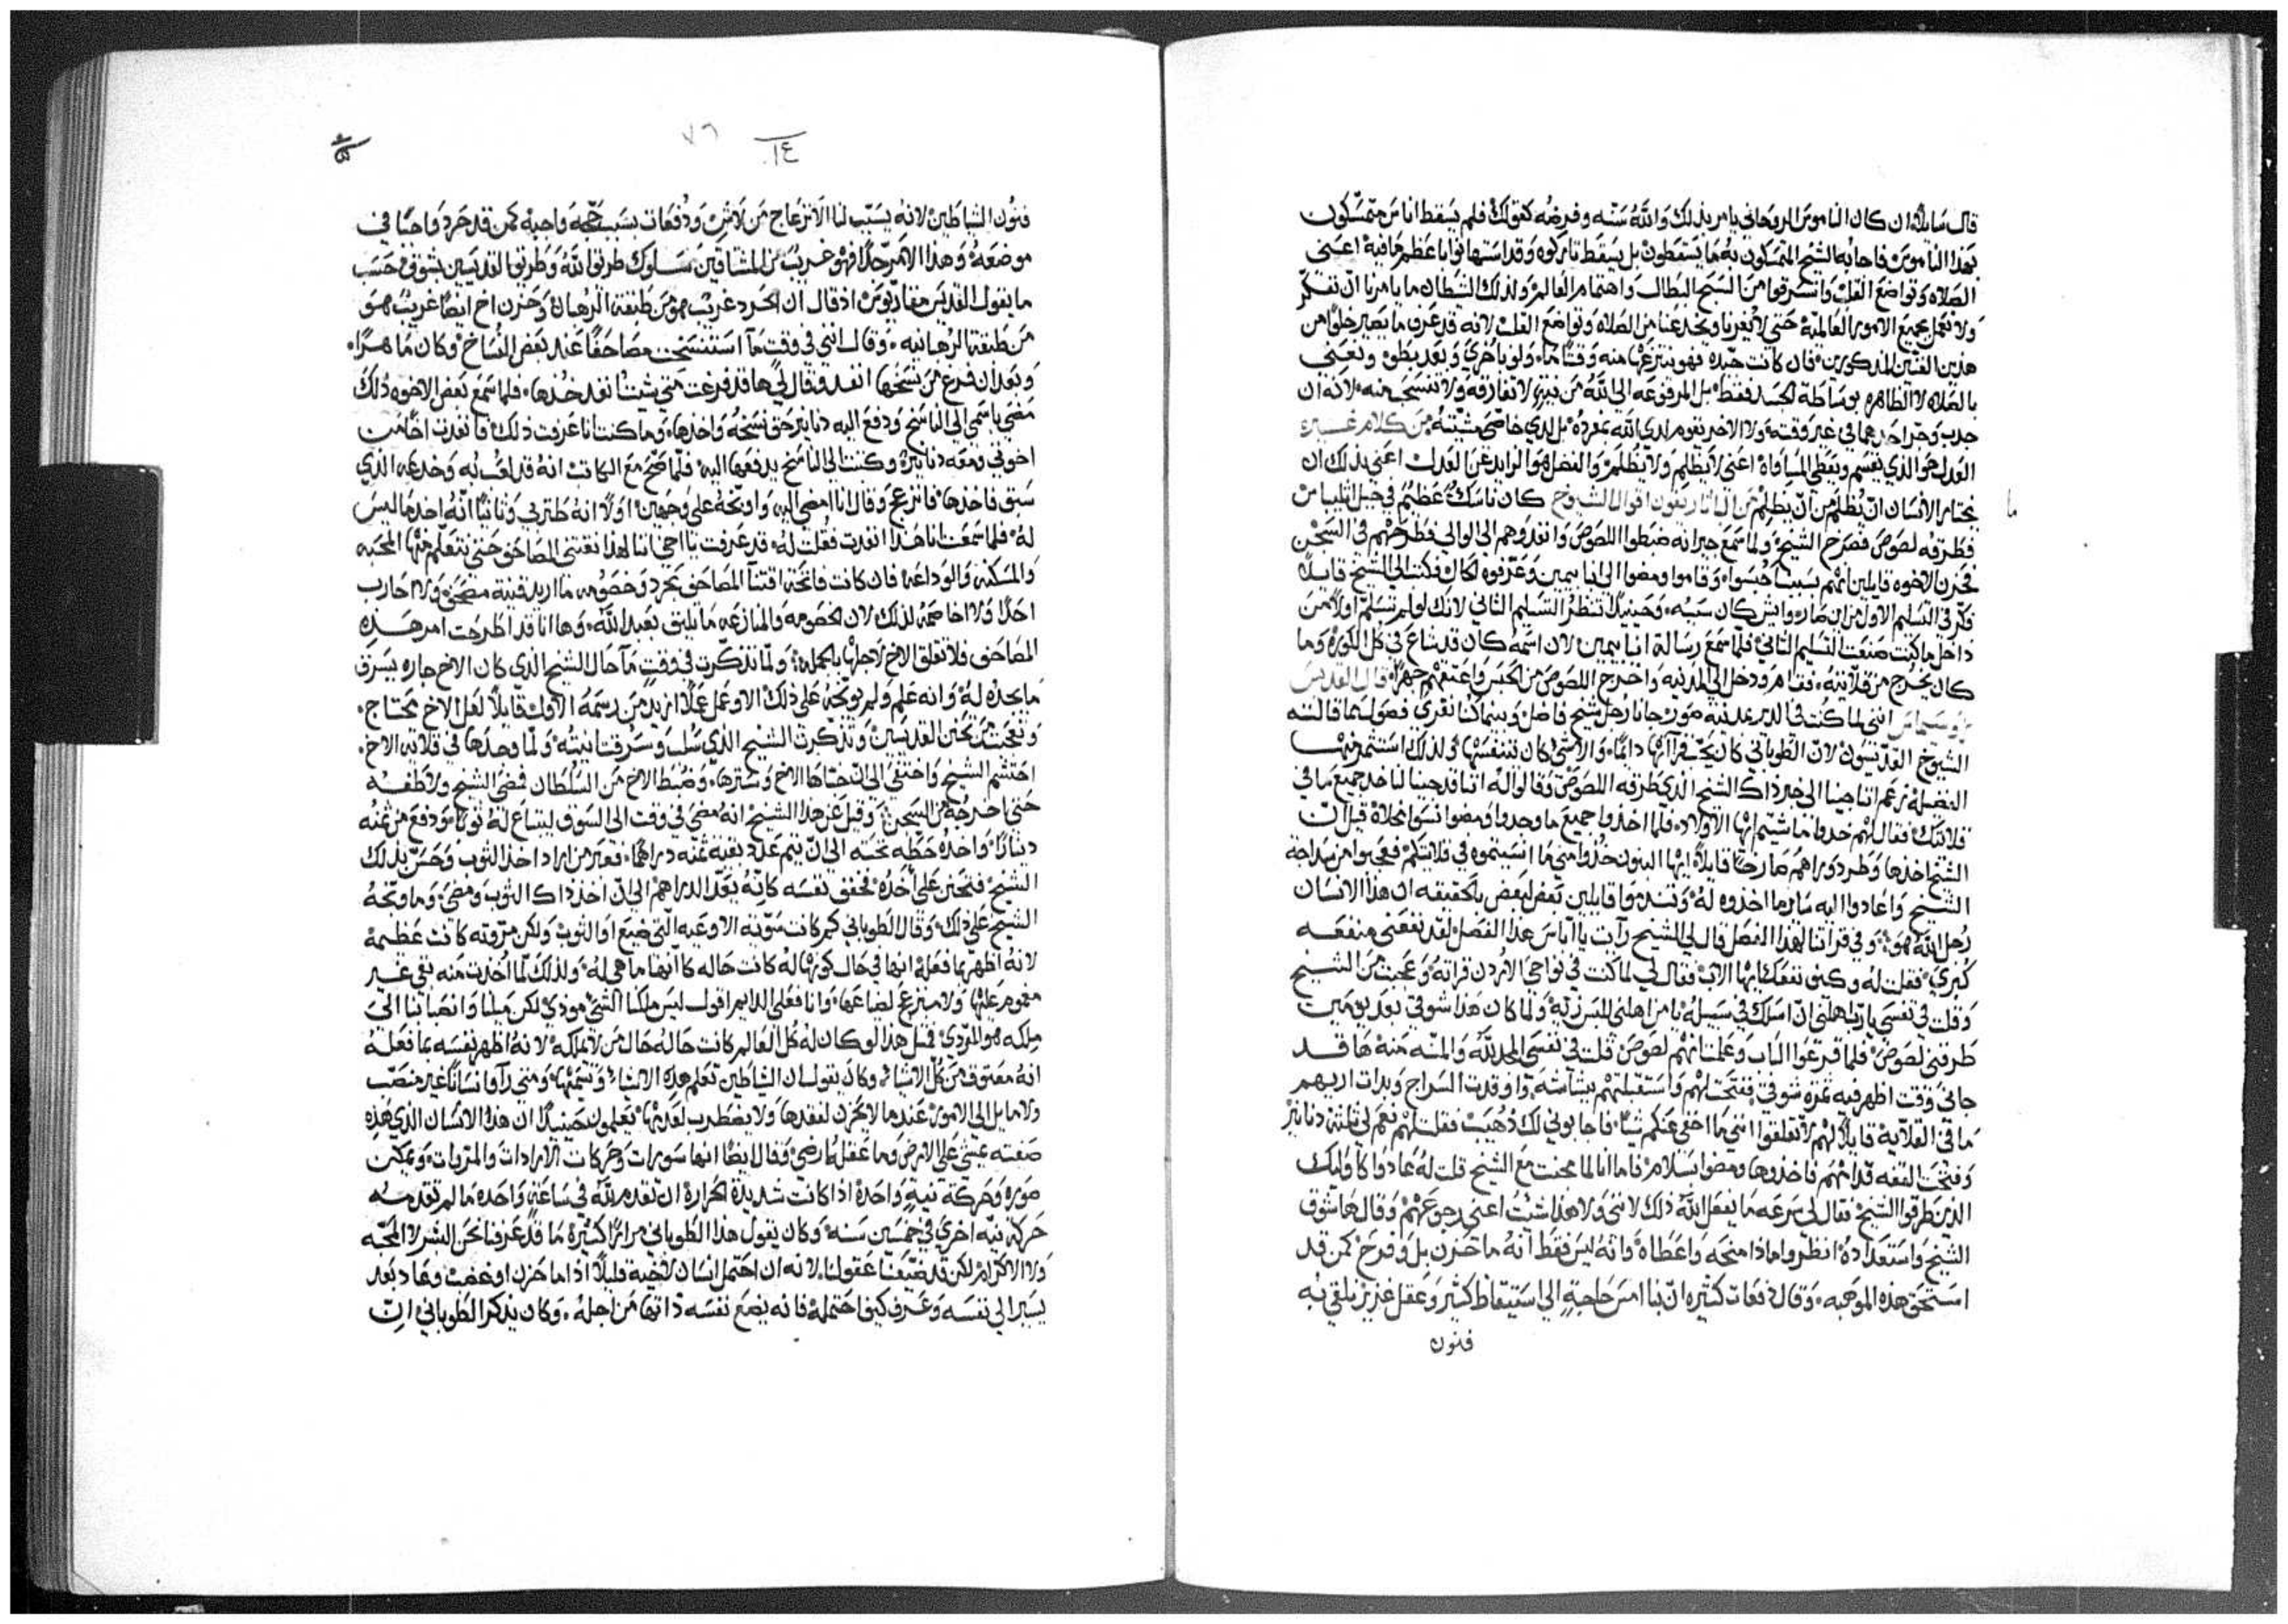 قال سايلا ان كان الناموس الروحاني يامر بذلك والله سنه وفرضه كقولك فلم يسقط اناس متمسكون
بهذا الناموس فاجابه الشيخ المتمسكون به ما يسقطون بل يسقط تاركوه وقد استهانوا باعظم مافيه اعني
الصلاه وتواضع القلب واستسرقوا من السبح البطال واهتمام العالم ولذلك الشيطان ما يامرنا ان نفكر
ولا نعمل بجميع الامور العالميه حتى لا يغرنا ويخدعنا من الصلاه وتواضع القلب لانه قد عرف ما يصير خلوا من
هذين الفنين المذكورين فان كانت جيده فهو ينتزعها منه وقتا ما ولو باخرى وبعد بطو ونعني
بالصلاه لا الظاهره بوساطة الجسد فقط بل المرفوعه الى الله من نيه لا تفارقه ولا تنسحب منه لانه ان
جذب وحد احدهما في غير وقته ولا الاخر يقوم لدى الله بمفرده بل الذي خاصي مشيته من كلام غيره
العدل هو الذي يقسم ويعطي المساواه اعني لا يظلم ولا يظلم والفضل هو الزايد عن العدل اعني بذلك ان
يختار الانسان ان يظلم من ان يظلم من اقوال الشيوخ كان ناسك عظيم في جبل
فطرقه لصوص فصرخ الشيخ ولما سمع جيرانه ضبطوا اللصوص وانفذوهم الى الوالي فطرحهم في السجن
فحزن الاخوه قايلين انهم بسببنا حبسوا وقاموا ومضوا الى انبا بيمين وعرفوه الحال فكتب الى الشيخ قايلا
فكر في التسليم الاول من اين صار وايش كان سببه وحينيذ تنظر التسليم الثاني لانك لو لم تسلم اولا من
داخل ما كنت صنعت التسليم الثاني فلما سمع رسالة انبا بيمين لان اسمه كان قد شاع في كل الكوره وما
كان يخرج من قلايته فقام ودخل الى المدينه واخرج اللصوص من الحبس واعتقهم جهرا قال القديس
انني لما كنت في الدير بمدينه صور جانا رجل شيخ فاضل وبينما كنا نقرى فصولا مما قالته
الشيوخ القديسون لان الطوباني كان يحب قرااتها دايما والاشيا كان يتنفسها ولذلك استثمر منها
الفضيله زعم اتاجينا الى خبر ذاك الشيخ الذي طرقه اللصوص وقالوا له اننا قد جينا لناخذ جميع ما في
قلايتك فقال لهم خذوا ما شيتم ايها الاولاد فلما اخذوا جميع ما وجدوا ومضوا نسوا مخلاة قيل ان
الشيخ اخذها وطرد وراهم صارخا قايلا ايها البنون خذوا مني ما انسيتموه في قلايتكم فعجبوا من سداجة
الشيخ واعادوا اليه ساير ما اخذوه له وتندموا قايلين بعض لبعض بالحقيقه ان هذا الانسان
رجل الله هو وفي قراتنا لهذا الفصل قال لي الشيخ رايت يا اباس هذا الفصل لقد نفعني منفعه
كبرى فقلت له وكيف نفعك ايها الاب فقال لي لما كنت في نواحي الاردن قراته وعجبت من الشيخ
وقلت في نفسي يارب اهلني ان اسلك في سبيله يا من اهلني للبس زيه ولما كان هذا شوقي بعد يومين
طرقني لصوص فلما قرعوا الباب وعلمت انهم لصوص قلت في نفسي الحمد لله والمنه منه ها قد
جاني وقت اظهر فيه ثمرة شوقي ففتحت لهم واستقبلتهم ببشاشه واوقدت السراج وبدات اريهم
ما في القلايه قايلا لهم لا تقلقوا انني ما اخفي عنكم شيا فاجابوني لك ذهيب فقلت لهم نعم لي ثلثة دنانير
وفتحت القفه قدامهم فاخذوها ومضوا بسلام فاما انا لما مجنت مع الشيخ قلت له عادوا كاوليك
الذين طرقوا الشيخ فقال لي سرعه ما يفعل الله ذلك لانني ولا هذا شئت اعني رجوعهم وقال ها شوق
الشيخ واستعداده انظروا ماذا منحه واعطاه وانه ليس فقط انه ما حزن بل وفرح كمن قد
استحق هذه الموهبه وقال دفعات كثيره ان بنا امس حاجة الى استيقاظ كثير وعقل غزير نلقي به
فنون
١٤
٧٦
فنون الشياطين لانه يسبب لنا الانزعاج من لا شي ودفعات بسبب حجه واجبه كمن قد حرد واجبا في
موضعه وهذا الامر جدا فهو غريب من المشتاقين سلوك طريق الله وطريق القديسين بشوق حسب
ما يقول القديس مقاريوس اذ قال ان الحرد غريب هو من طبقه الرهبان وحزن اخ ايضا غريب هو
من طبقة الرهبانيه وقال انني في وقت ما استنسخت مصاحفا عند بعض النساخ وكان ماهرا
وبعد ان فرغ من نسخها انفذ وقال لي ها قد فرغت متى شيت انفذ خذها فلما سمع بعض الاخوه ذلك
مضى باسمي الى الناسخ ودفع اليه دنانير حق نسخه واخذها وما كنت انا عرفت ذلك فانفذت اخا من
اخوتي ومعه دنانيره وكتبت الى الناسخ يدفعها اليه فلما صح مع الكاتب انه قد لعب به وخدعه الذي
سبق فاخذها فانزعج وقال انا امضي اليه واوبخه على وجهين اولا انه طنز بي وثانيا انه اخذ ما ليس
له فلما سمعت انا هذا انفذت فقلت له قد عرفت يا اخي اننا لهذا نقتني المصاحف حتى نتعلم منها المحبه
والمسكنه والوداعه فان كانت فاتحة اقتنا المصاحف بحرد وخصومه ما اريد قنية مصحف ولا احارب
احدا ولا اخاصمه لذلك لان الخصومه والمنازعه ما يليق بعبد الله وها انا قد اطرحت امر هذه
المصاحف فلا تقلق الاخ لاجلها بالجمله ولما تذكرت في وقت ما حال الشيخ الذي كان الاخ جاره يسرق
ما يجده له وانه علم ولم يوبخه على ذلك الا وعمل عملا ازيد من رسمه الاول قايلا لعل الاخ محتاج
وتعجبت من تحنن القديسين وتذكرت الشيخ الذي سلب وسرقت انيته ولما وجدها في قلاية الاخ
احتشم الشيخ واختفى الى ان خباها الاخ وسترها وضبط الاخ من السلطان فمضى الشيخ ولاطفه
حتى اخرجه من السجن وقيل عن هذا الشيخ انه مضى في وقت الى السوق ليبتاع له ثوبا ودفع من ثمنه
دينارا واخذه حطه تحته الى ان يتم عدد بقية ثمنه دراهما فعبر من اراد اخذ الثوب وحس بذلك
الشيخ فتحنن على اخذه فخفق نفسه كانه يعد الدراهم الى ان اخذ ذاك الثوب ومضى وما وبخه
الشيخ على ذلك وقال الطوباني كم كانت سويه الاوعيه التي ضيع او الثوب ولكن مروته كانت عظيمة
لانه اظهر بما فعله انها في حال كونها له كانت حاله كانها ما هي له ولذلك لما اخذت منه بقي غير
مغموم عليها ولا منزعج لضياعها وانا فعلى الدايم اقول ليس ملكنا الشي موذي لكن ميلنا وانصبابنا الى
ملكه هو المردي فمثل هذا لو كان له كل العالم كانت حاله حال من لا يملكه لانه اظهر نفسه بما فعله
انه معتوق من كل الاشيا وكان يقول ان الشياطين تعلم هذه الاشيا ومتى راوا انسانا غير منصب
ولا مايل الى الامور عندما لا يحزن لفقدها ولا يضطرب لعدمها يعلمون حينيذ ان هذا الانسان الذي هذه
صفته يمشي على الارض وما عقله ارضي وقال ايضا انها سورات وحركات الارادات والمروات ويمكن
سوره وحركة نيه واحدة اذا كانت شديدة الحراره ان تقدم لله في ساعة واحده ما لم تقدمه
حركة نيه اخرى في خمسين سنه وكان يقول هذا الطوباني مرارا كثيرة ما قد عرفنا نحن البشر لا المحبه
ولا الاكرام لكن قد ضيعنا عقولنا لانه ان احتمل انسان لاخيه قليلا اذا ما حزن او غضب وعاد بعد
يسير الى نفسه وعرف كيف احتمله فانه يضع نفسه ذاتها من اجله وكان يذكر الطوباني ان